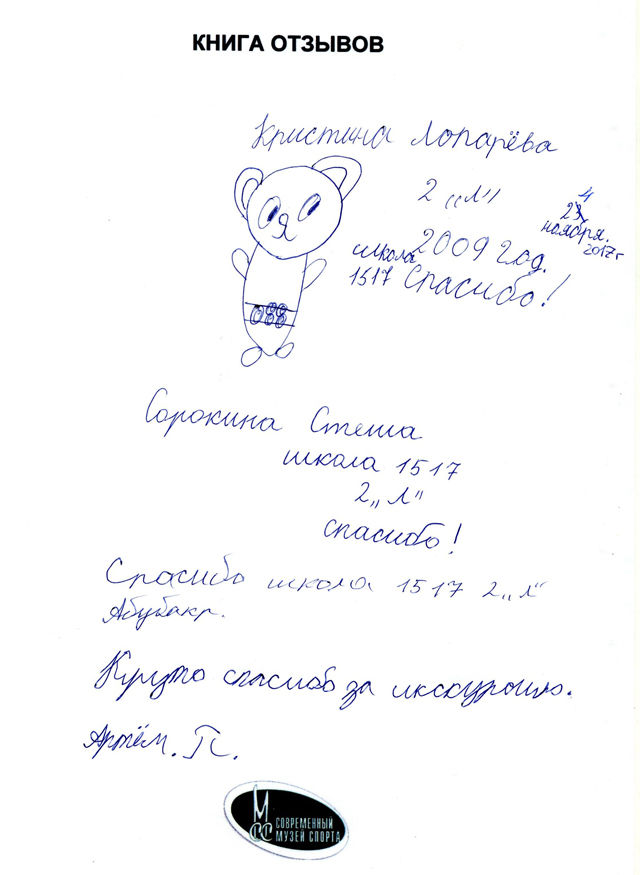 КНИГА ОТЗЫВОВ
Кристина Лопарёва
2 „Л"
24
ноября.
2017г
2009 год.
школа
1517 Спасибо!
Я
Сорокина Стеша
школа 1517
2 „Л"
спасибо!
Спасибо школа 1517 2 „Л"
Абубакр.
Круто спасибо за икскурсию.
Артём. П.
МСС СОВРЕМЕННЫЙ
МУЗЕЙ СПОРТА